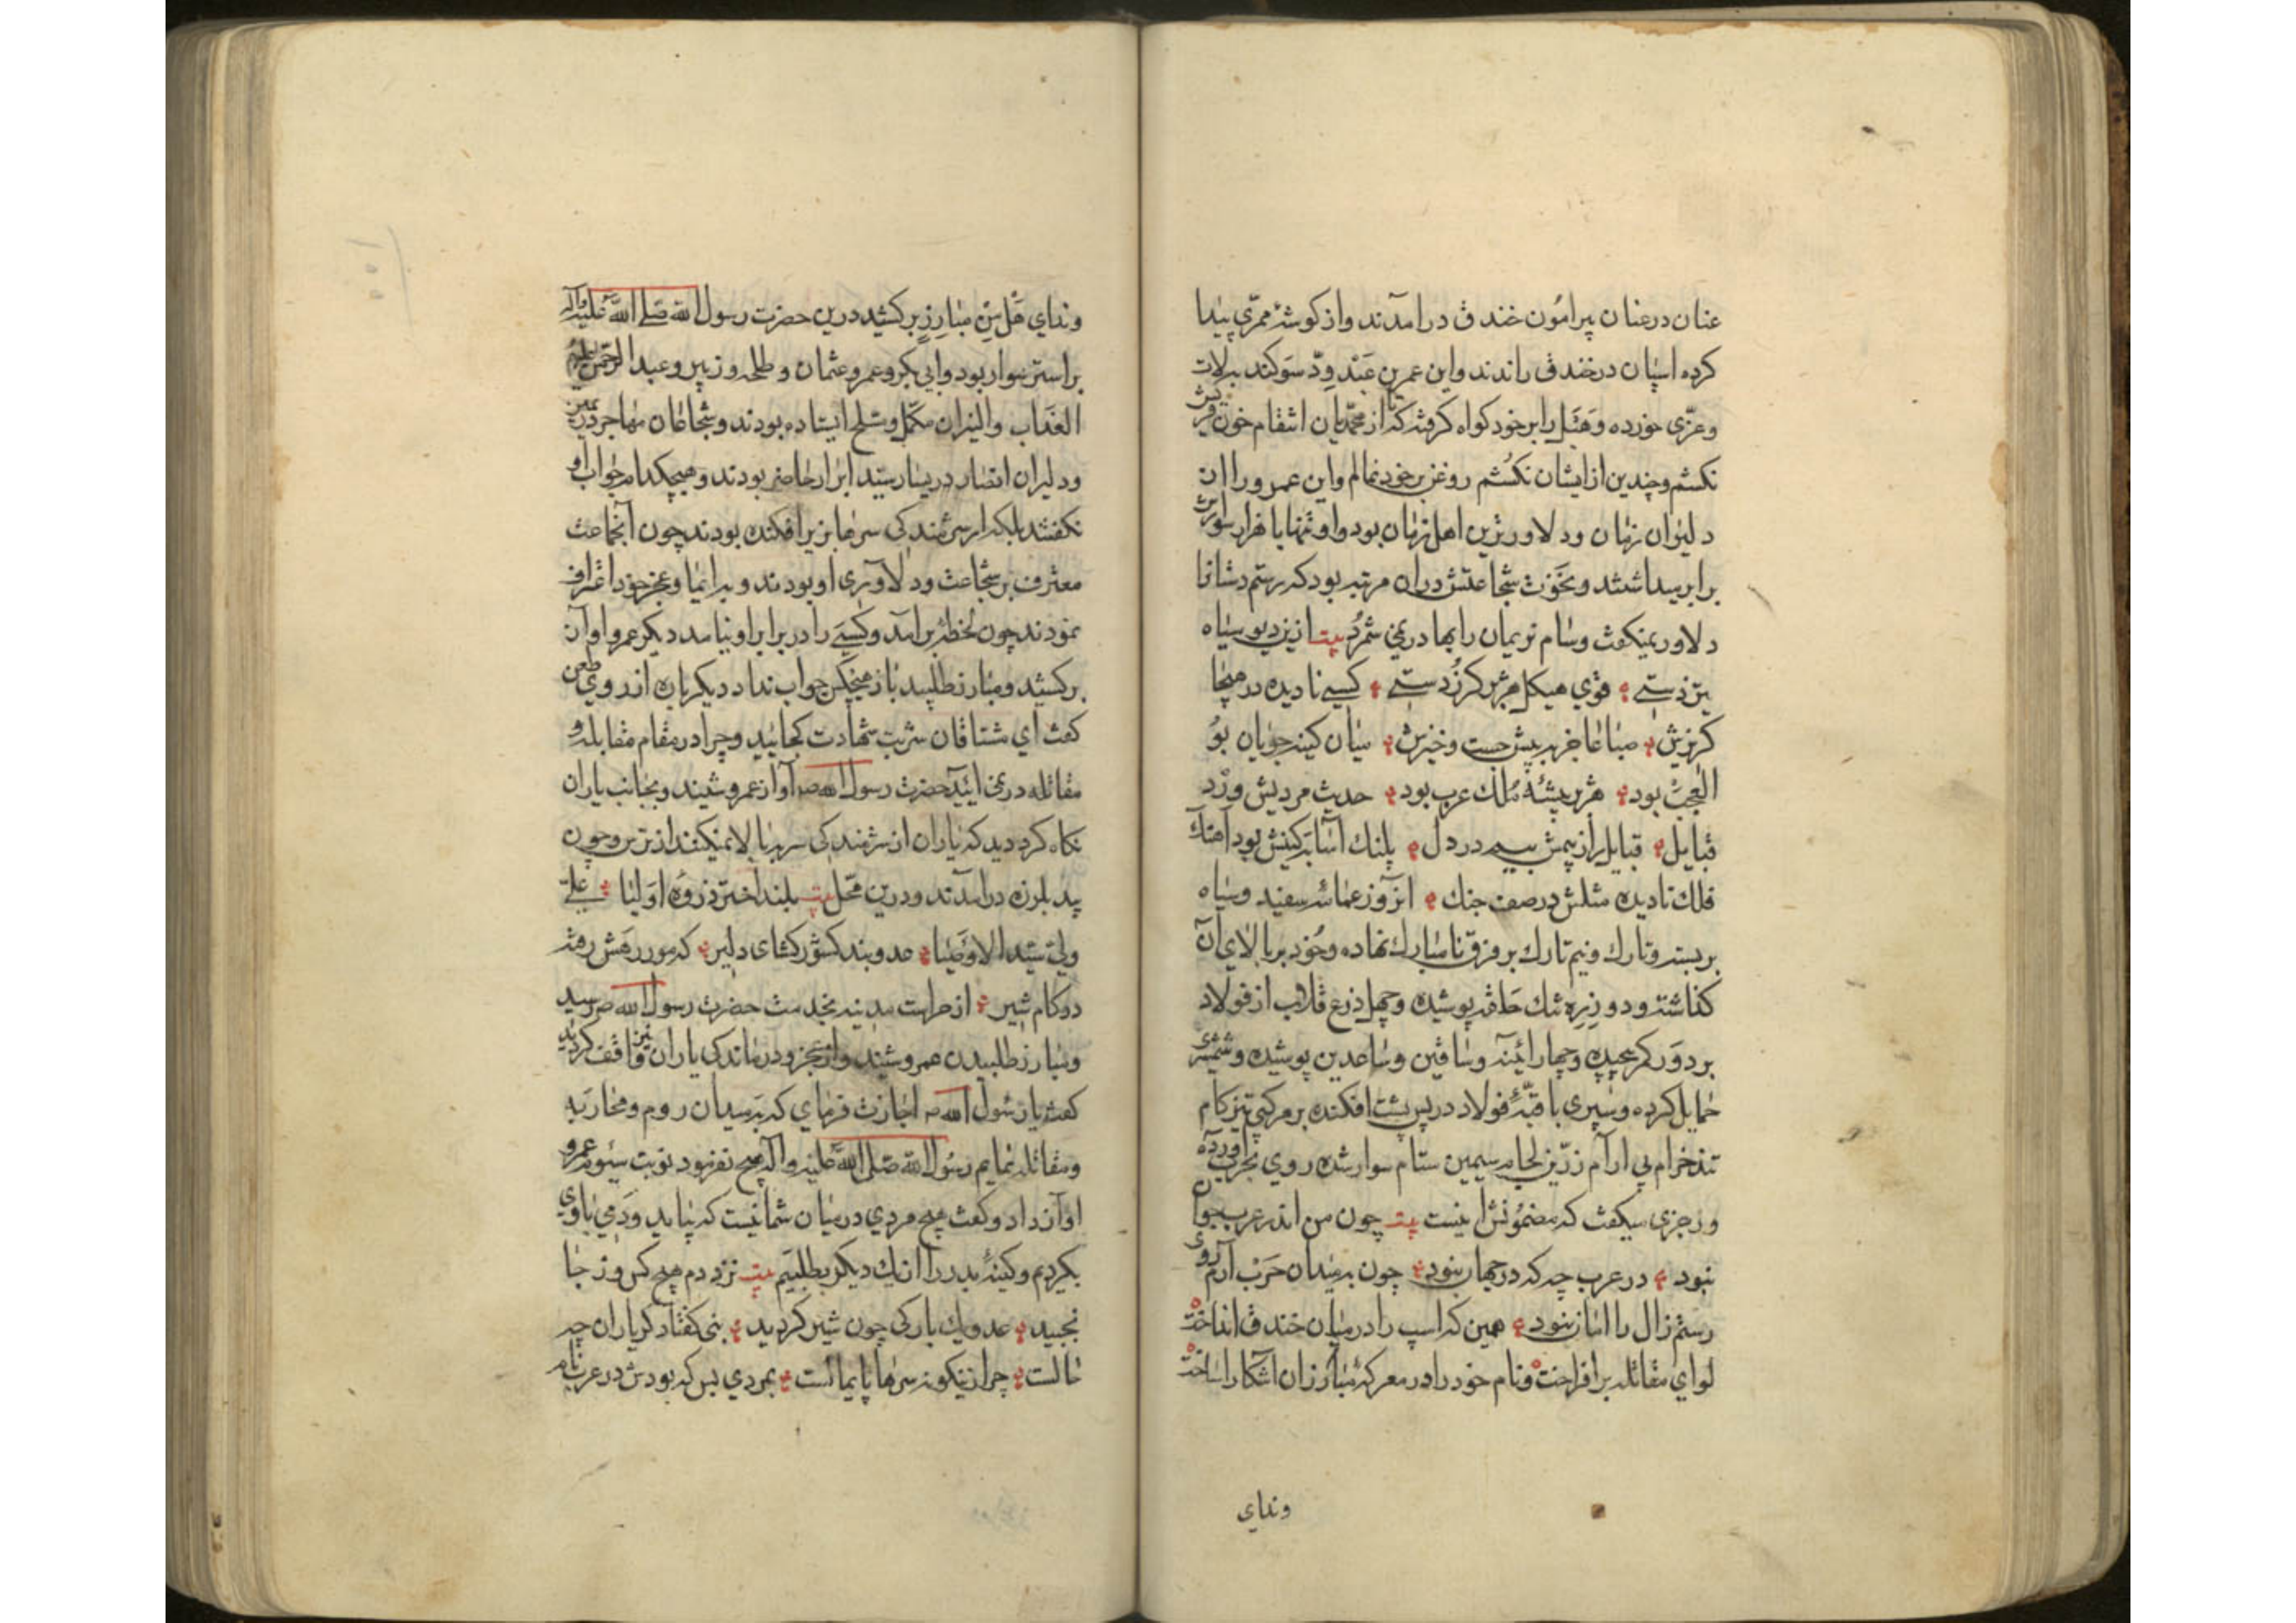 عنان در عنان پیرامون خندق درامدند و از کوشهٔ ممرّی پیدا
کرده اسپان در خندق راندند و این عمر بن عَبْد وِدّ سَوکند به لات
و عزّی خورده و هَبَل را بر خود کواه کرفته که تا از محمّدیان انتقام خون قریش
نکشم و چندین از ایشان نکُشم روغن بر خود نمالم و این عمرو را از
دلیران زمان و دلاورترین اهل زمان بود و او تنها با هزار سوارش
برابر میداشتند و نخوت شجاعتش دران مرتبه بود که رستم دستانرا
دلاور نمیکفت و سام نریمان را بها در نمی شمرُد بیت ازین دیو سیاه
قوي هیکل هژبر کرزُ دستے کسے نادیده در هیجا
کریزش میان کینه جویان بُو
العجب بود هژبر بیشهٔ مُلك عرب بود حدیث مردیش ورْد
قبایل قبایل را ز بیمش بیم در دل پلنك آسا بَر کینش بود آهنك
فلك نادیده مثلش در صف جنك انروز عمامهٔ سفید و سیاه
بر بسته و تارك و نیم تارك بر فرق نامبارك نهاده و خُود بر بالای آن
کذاشته و دو زِرِه تنك حلقه پوشیده و چهل ذرع قلاب از فولاد
بر دَور کمر پیچیده و چهار آئینه و ساقین و ساعدین پوشیده و شمشیری
حمایل کرده و سپری با قبّهٔ فولاد در پس پشت افکنده بر مرکبی تیز کام
تند خرام بی ارام زرّین لجام سیمین ستام سوار شده روي بحرب آورده
و رجزی میکفت که مضمُونش اینست بیت چون من اندر عرب جوا
نبود در عرب چه که در جهان نبود چون بمیدان حَرْب آرم روی
رستم زال را امان نبود همین که اسپ را در میان خندق انداخت
لواي مقاتله بر افراخت و نام خود را در معرکهٔ مبارزان آشکارا ساخت
و ندای
و ندای هَلْ مِنْ مُبارِزٍ بر کشید درین حضرت رسول الله صَلی الله عَلیه وآله
بر استر سوار بود و ابی بکر و عمر و عثمان و طلحه و زبیر و عبد الرحمن
العذاب والنیران مکمّل و مسلح ایستاده بودند و شجاعان مهاجر در یمین
و دلیران انصار در یسار سیّد ابرار حاضر بودند و هیچکدام جواب او
نکفتند بلکه از شرمندکی سرها بزیر افکنده بودند چون آنجماعت
معترف بر شجاعت و دلاوری او بودند و بعجز خود اعتراف
نمودند چون لحظهٔ بر آمد و کسے را در برابر او نیامد دیکر عمرو اواز
بر کشید و مبارز طلبید باز هیچکس جواب نداد دیکر باره از روي طعن
کفت اي مشتاقان شربت شهادت کجائید و چرا در مقام مقابله و
مقاتله در نمی ائید حضرت رسول الله ص آواز عمرو شنید و بجانب یاران
نکاه کرد دید که یاران از شرمندکی سر بالا نمیکنند از ترس و چون
بید بلرزه درامدند و درین محل بیت بلند اختر ذروهٔ اولیا علیّ
ولی سیّد الاوصیا عدو بند کشور کشای دلیر که مور رهش رفته
دو کام شیر از حراست مدینه بخدمت حضرت رسول الله ص رسید
و مبارز طلبیدن عمرو شنید و از عجز و درماندکی یاران نیز واقف کردید
کفت یا رسول الله ص اجازت فرماي که بمیدان روم و محاربه
و مقاتله نمایم رسُول الله صَلی الله علیه و آله هیچ نفرمود نوبت سیُوم عمرو
اواز داد و کفت هیچ مردي در میان شما نیست که بیاید و دمي با وي
بکردیم و کینهٔ بدر را از یك دیکر بطلبیم بیت نزد دم هیچ کس و ز جا
نجنبید عدو یك بارکی چون شیر کردید نبی کفتا دکر یاران چه
حالست چرا زینکونه سرها پایمالست بمردي بس که بودش در عرب نام